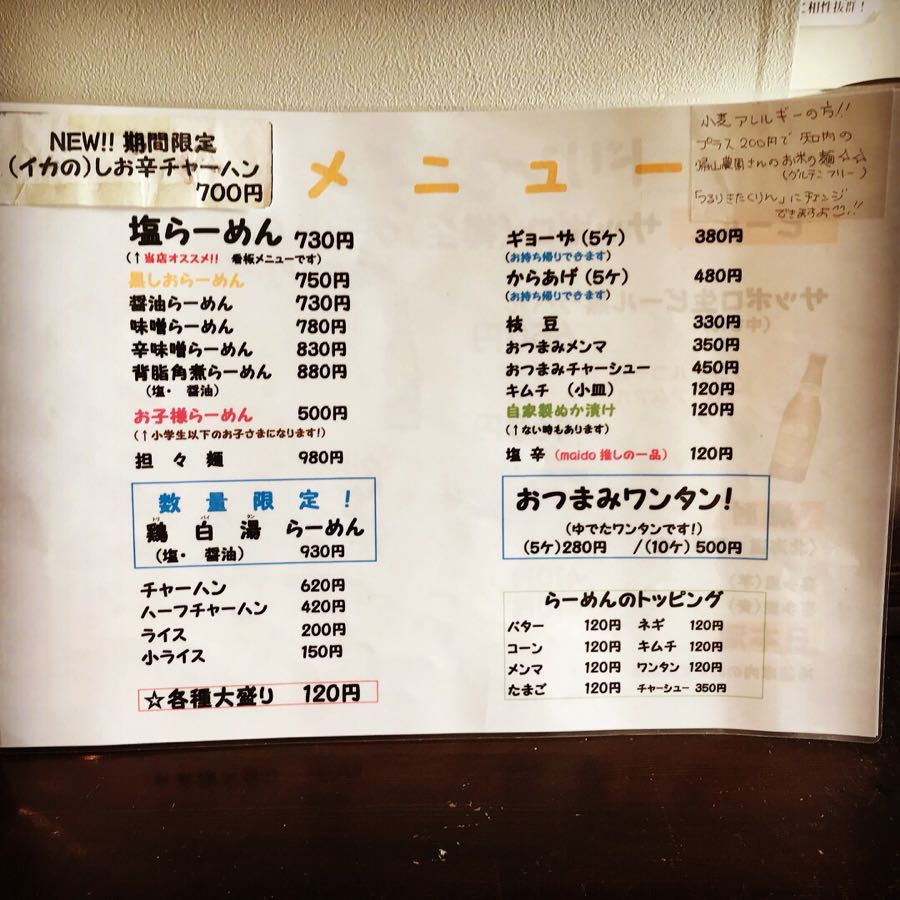 に相性抜群!
NEW!! 期間限定
(イカの)しお辛チャーハン
700円
メニュー
小麦アレルギーの方!!
プラス200円で 知内の
帰山農園さんのお米の麺☆☆
(グルテンフリー)
「つるりきたくりん」にチェンジ
できますよ!!
塩らーめん 730円
(↑当店オススメ!! 看板メニューです)
黒しおらーめん 750円
醤油らーめん 730円
味噌らーめん 780円
辛味噌らーめん 830円
背脂角煮らーめん 880円
(塩・ 醤油)
お子様らーめん 500円
(↑小学生以下のお子さまになります!)
担々麺 980円
数量限定!
トリ パイ タン
鶏白湯 らーめん
(塩・ 醤油) 930円
チャーハン 620円
ハーフチャーハン 420円
ライス 200円
小ライス 150円
☆各種大盛り 120円
ギョーザ(5ケ) 380円
(お持ち帰りできます)
からあげ(5ケ) 480円
(お持ち帰りできます)
枝豆 330円
おつまみメンマ 350円
おつまみチャーシュー 450円
キムチ (小皿) 120円
自家製ぬか漬け 120円
(↑ない時もあります)
塩辛 (maido推しの一品) 120円
おつまみワンタン!
(ゆでたワンタンです!)
(5ケ)280円 /(10ケ)500円
らーめんのトッピング
バター 120円 ネギ 120円
コーン 120円 キムチ 120円
メンマ 120円 ワンタン 120円
たまご 120円 チャーシュー 350円